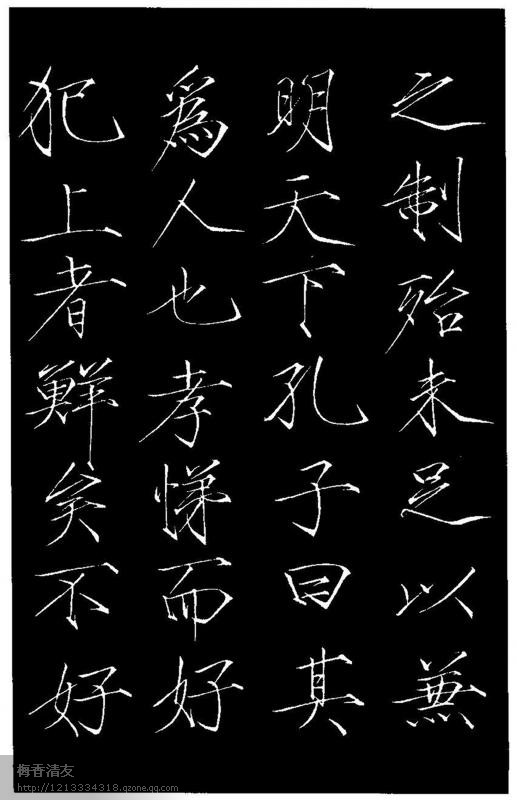 之制殆未足以兼
明天下孔子曰其
爲人也孝悌而好
犯上者鮮矣不好
梅香清友
http://1213334318.qzone.qq.com